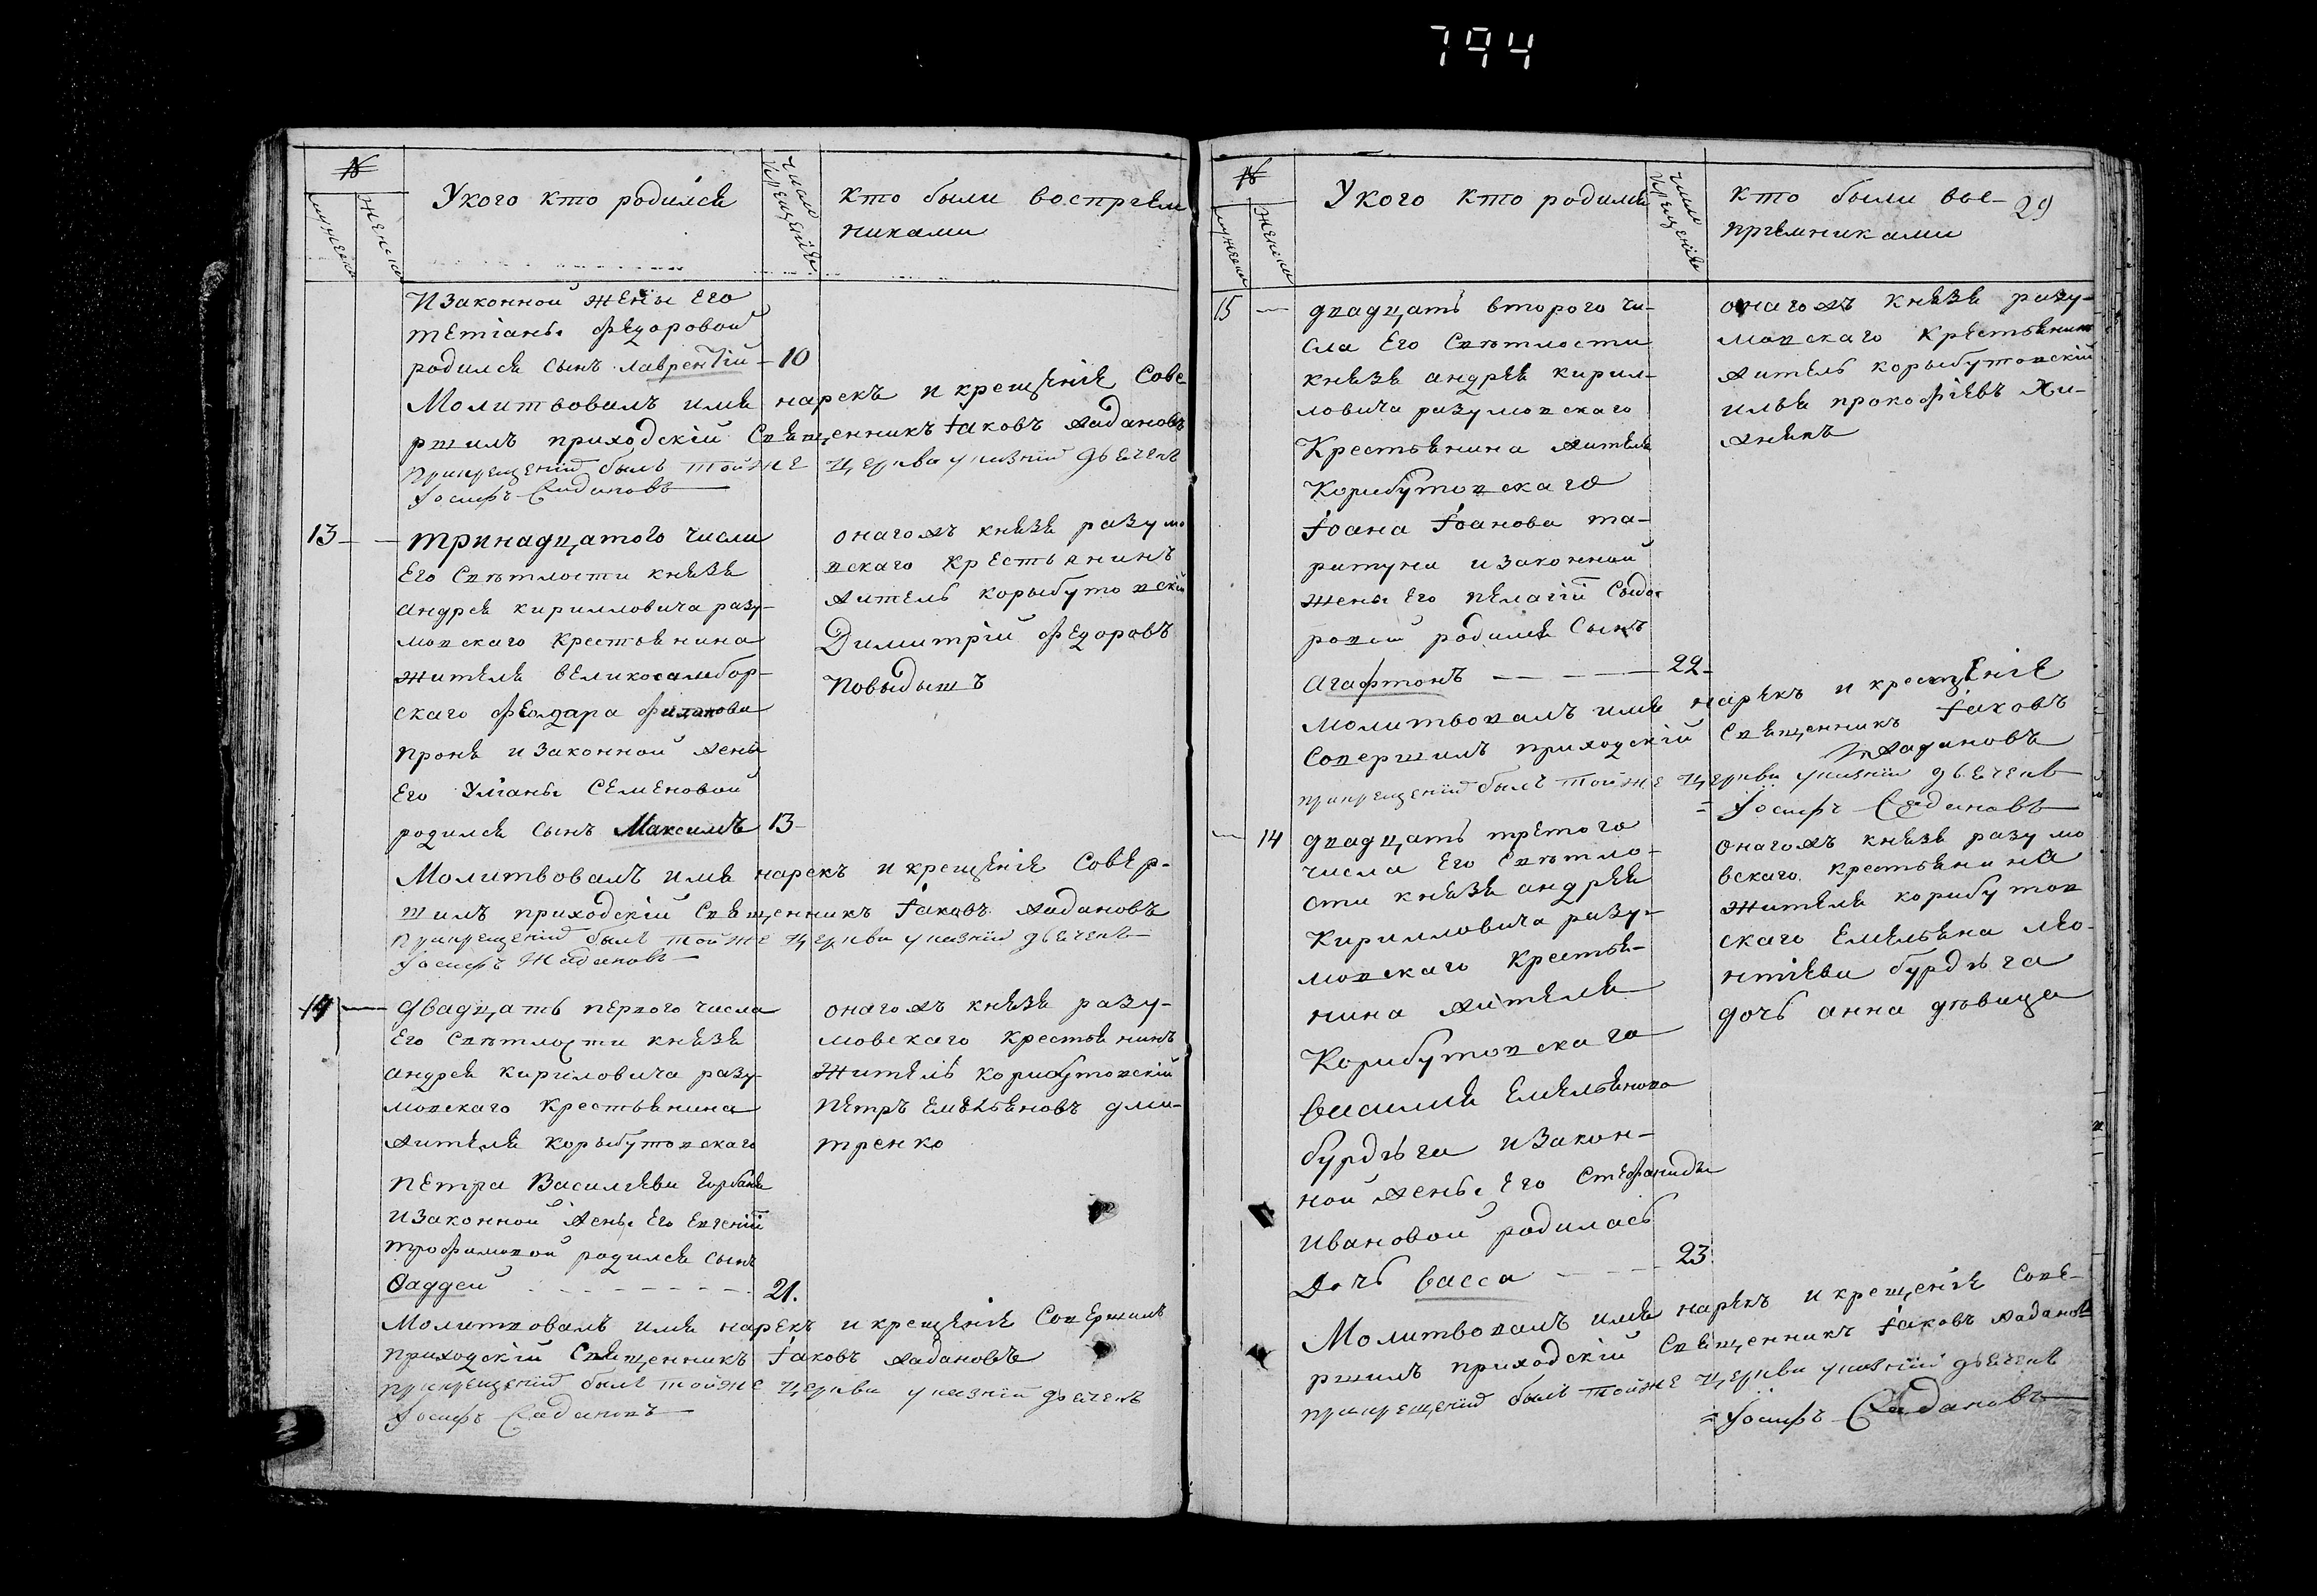 794
№
мужеска
женска
Укого кто родился
число крещенія
кто были воспріем
никами
Изаконной жены Его
тетіаны федоровой
родился сынъ лаврентій - 10
Молитвовалъ имя нарекъ и крещеніе Сове
ршилъ приходскій Священникъ Іаковъ Жадановъ
Прикрещеніи былъ тойже церкви указній дьячекъ
Іосифъ Жадановъ
13 - — тринадцатого числа
Его Светлости князя
андрея кирилловича разу-
мовскаго крестьянина
жителя великосамбор-
скаго феодара
проня изаконной жены
Его Уліаны Семеновой
родился сынъ Максимъ 13-
онагожъ князя разумо
вскаго крестьянинъ
житель корыбутовскій
Димитрій федоровъ
повыдышъ
Молитвовалъ имя нарекъ и крещеніе Совер-
шилъ приходскій Священникъ Іаковъ Жадановъ
Прикрещеніи былъ тойже церкви указній дьячекъ
Іосифъ Жадановъ
14 — двадцать первого числа
Его Светлости князя
андрея кириловича разу-
мовскаго крестьянина
жителя корыбутовскаго
петра Василіева горбаня
изаконной жены Его Евгеніи
трофимовой родился сынъ
Фаддей - - - - - - - 21.
онагожъ князя разу-
мовскаго крестьянинъ
житель корибутовскій
петръ Емельяновъ дми-
тренко
Молитвовалъ имя нарекъ и крещеніе Совершилъ
приходскій Священникъ Іаковъ Жадановъ
прикрещеніи былъ тойже церкви указній дьячекъ
Іосифъ Жадановъ
№
мужеска
женска
Укого кто родился
число крещенія
кто были вос-
пріемниками
29
15 — двадцать второго чи-
сла Его Светлости
князя андрея кирил-
ловича разумовскаго
Крестьянина жителя
Корибутовскаго
Іоана Іоанова та-
ратуна изаконной
жены Его пелагіи Сыдо
ровой родился Сынъ
Агафтонъ — — — 22-
онагожъ князя разу-
мовскаго крестьянинъ
житель корыбутовскій
илья прокофіевъ Хи-
жнякъ
Молитвовалъ имя нарекъ и крещеніе
Совершилъ приходскій Священникъ Іаковъ
Жадановъ
прикрещеніи былъ тойже церкви указній дьячекъ
= Іосифъ Жадановъ
— 14 двадцать третого
числа Его Светло-
сти князя андрея
Кирилловича разу-
мовскаго крестья-
нина жителя
Корибутовскаго
василія Емельянова
бурдѣга изакон-
ной жены Его Стефаниды
ивановой родилась
Дочь васса — — — 23.
онагожъ князя разумо
вскаго крестьянина
жителя корибутов
скаго Емельяна лео-
нтіева бурдѣга
дочь анна дѣвица
Молитвовалъ имя нарекъ и крещеніе Сове-
ршилъ приходскій Священникъ Іаковъ Жаданов
прикрещеніи былъ тойже церкви указній дьячекъ
= Іосифъ Жадановъ